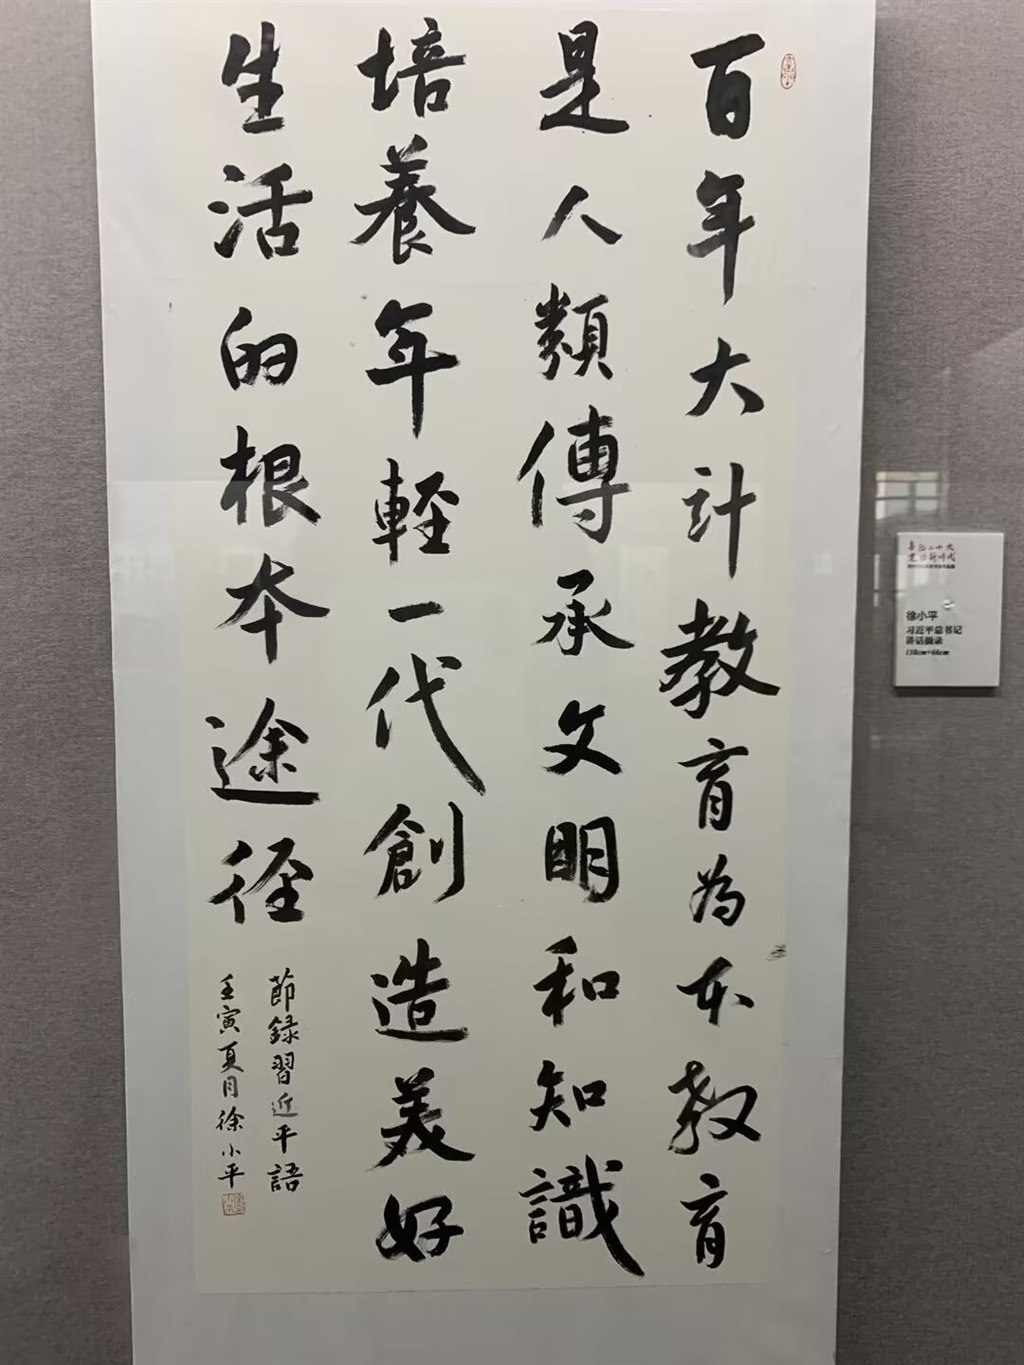 百年大計教育為本教育
是人類傳承文明和知識
培養年輕一代創造美好
生活的根本途徑
節録習近平語
壬寅夏月徐小平
喜迎二十大
徐小平
习近平总书记
讲话摘录
138cm×68cm